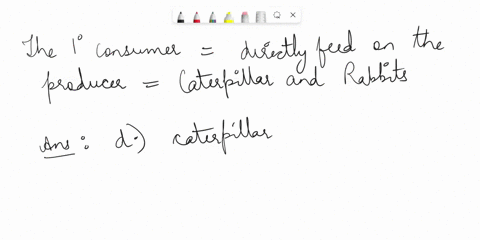 The 1° consumer = directly feed on the
producer = Caterpillar and Rabbits
Ans: d.) caterpillar